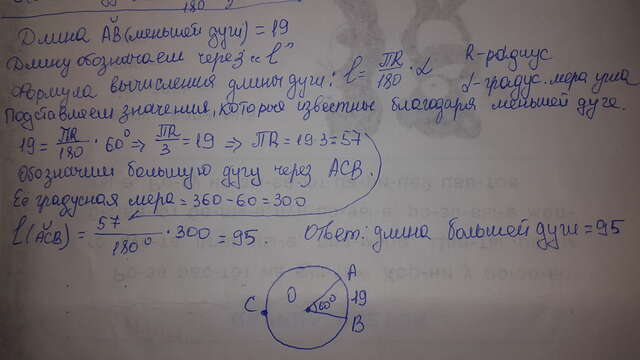 180
Длина AB (меньшей дуги) = 19
Длину обозначаем через "l"
Формула вычисления длины дуги: l = πR/180 · α R - радиус
α - градус. мера угла
Подставляем значения, которые известные благодаря меньшей дуге.
19 = πR/180 · 60° ⇒ πR/3 = 19 ⇒ πR = 19·3 = 57
Обозначим большую дугу через ACB.
Её градусная мера = 360 - 60 = 300
l(ACB) = 57/180° · 300 = 95. Ответ: длина большей дуги = 95
A
O
C 60° 19
B